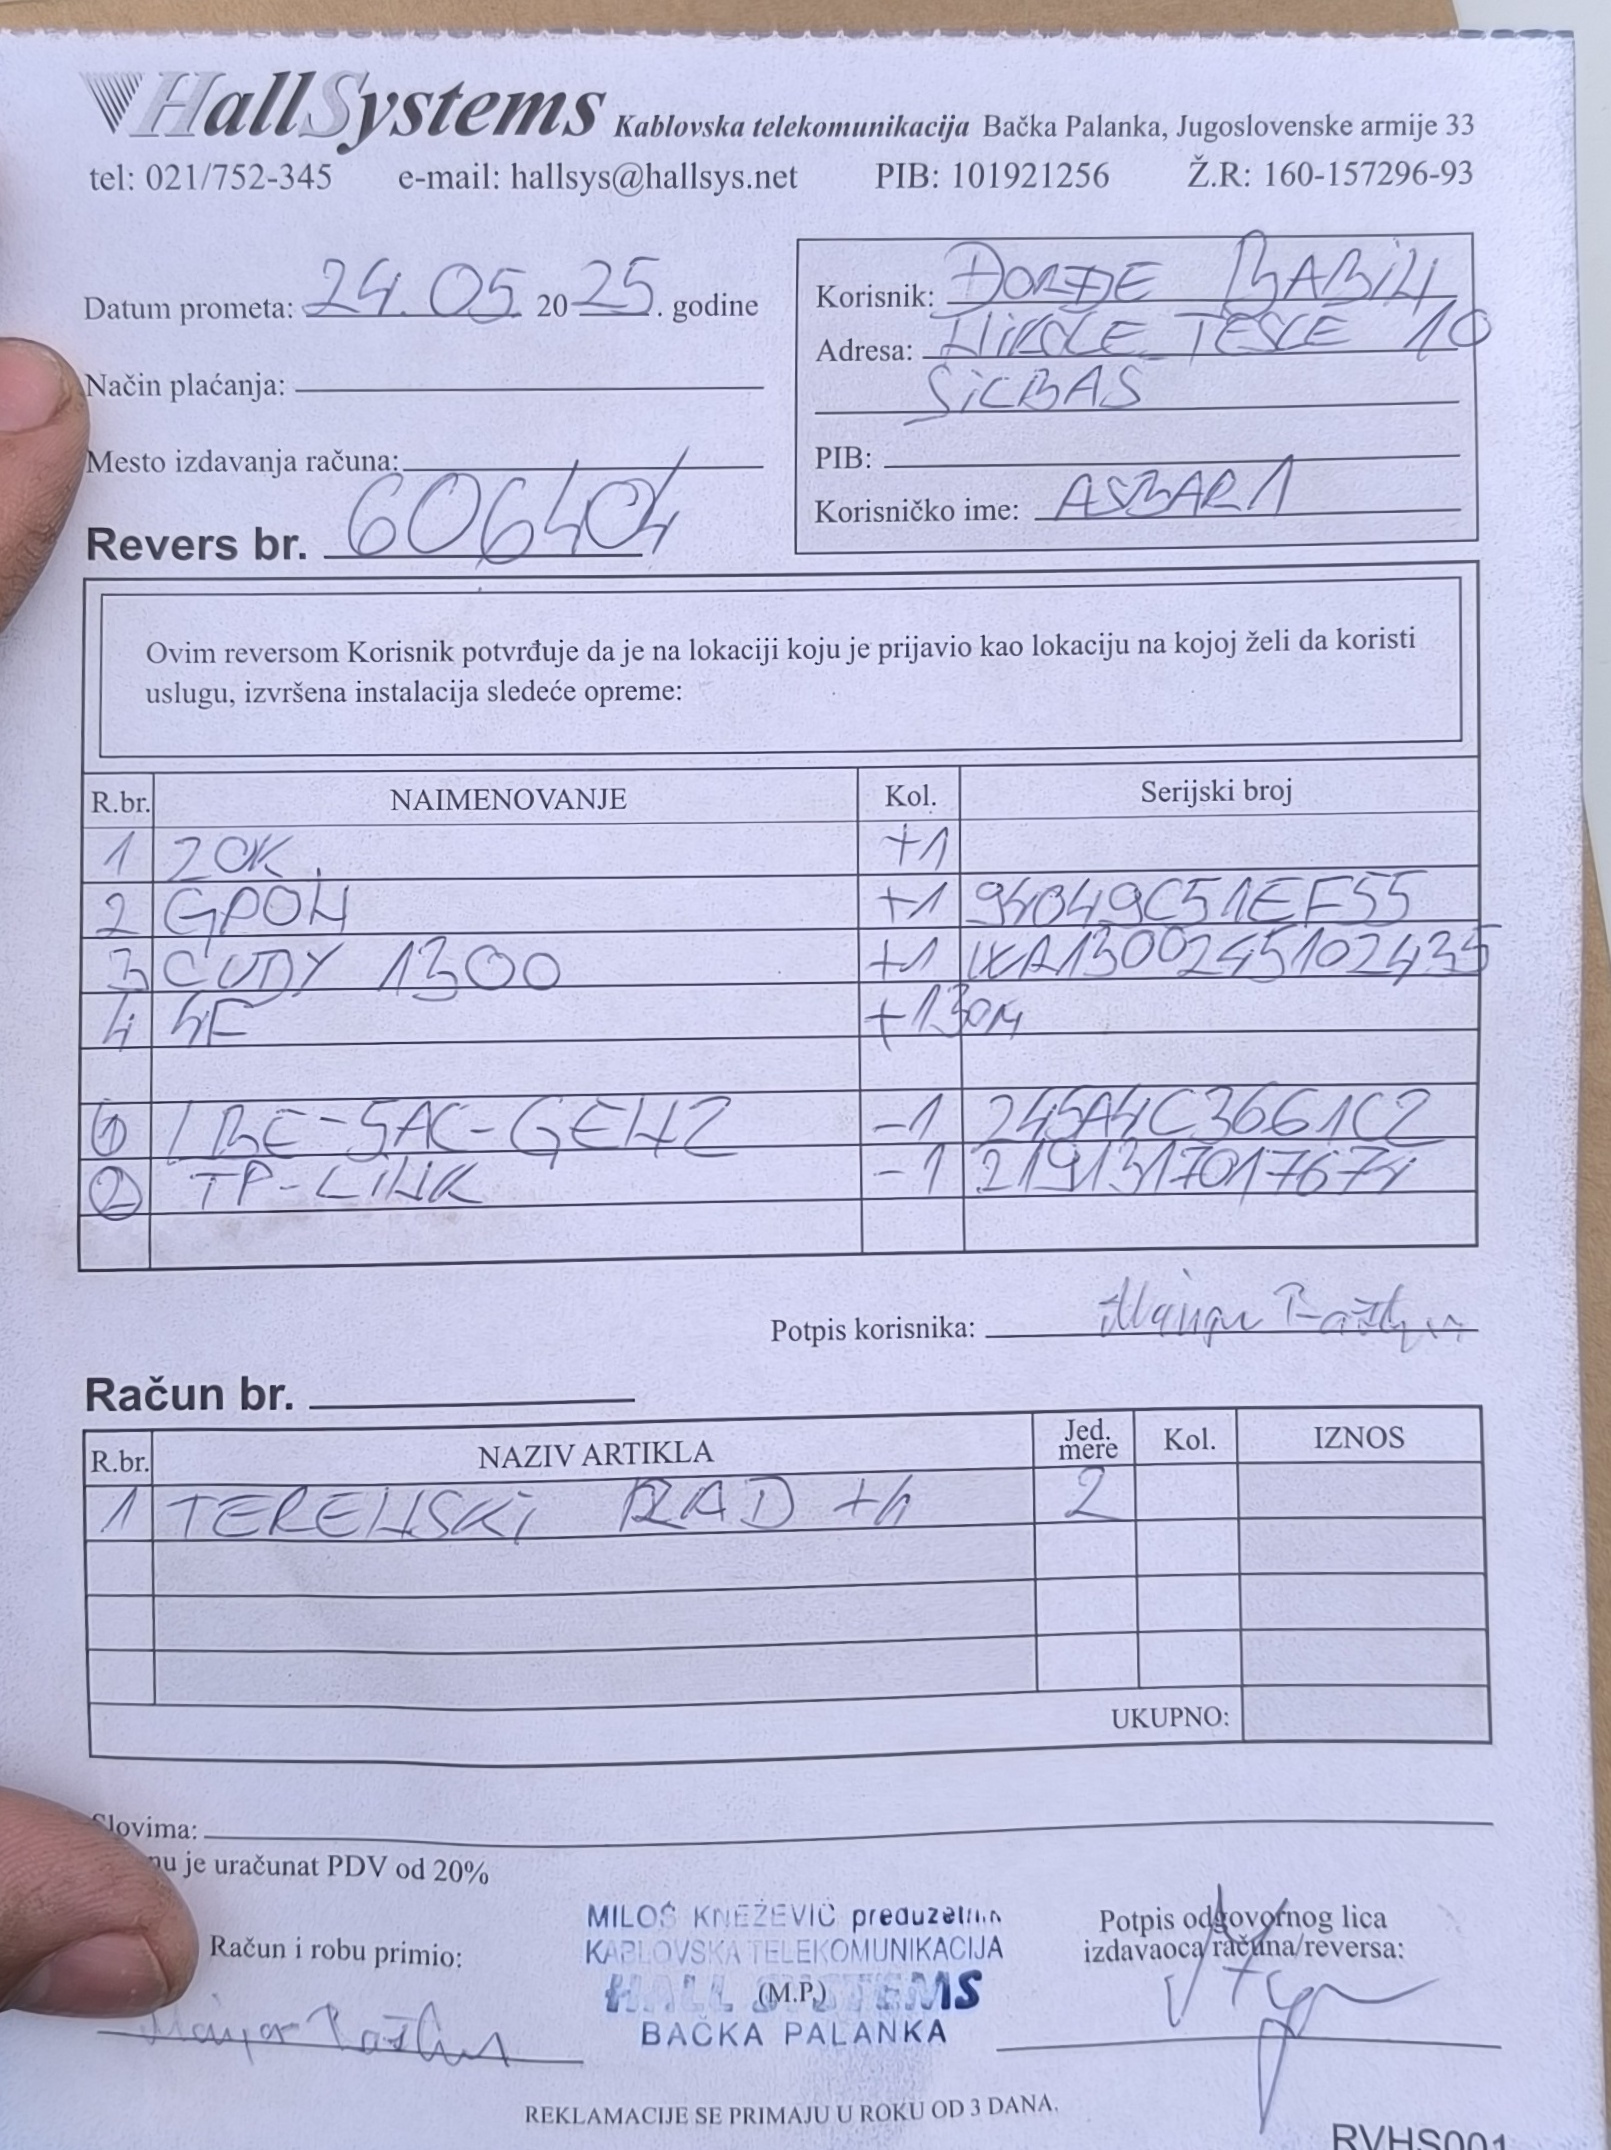 HallSystems Kablovska telekomunikacija Bačka Palanka, Jugoslovenske armije 33
tel: 021/752-345 e-mail: hallsys@hallsys.net PIB: 101921256 Ž.R: 160-157296-93
Datum prometa: 24.05. 2025. godine
Način plaćanja:
Mesto izdavanja računa:
Revers br. 606404
Korisnik: ĐORĐE BABIĆ
Adresa: NIKOLE TESLE 10
SILBAŠ
PIB:
Korisničko ime: ASBAR1
Ovim reversom Korisnik potvrđuje da je na lokaciji koju je prijavio kao lokaciju na kojoj želi da koristi
uslugu, izvršena instalacija sledeće opreme:
R.br. NAIMENOVANJE Kol. Serijski broj
1 ZOK +1
2 GPON +1 94049C51EF55
3 CUDY 1300 +1 WRA13002451024335
4 4F +130m
1 LBE-5AC-GEN2 -1 245A4C3661C2
2 TP-LINK -1 2191317017674
Potpis korisnika:
Račun br.
R.br. NAZIV ARTIKLA Jed. mere Kol. IZNOS
1 TERENSKI RAD +h 2
UKUPNO:
Slovima:
nu je uračunat PDV od 20%
Račun i robu primio:
MILOŠ KNEŽEVIĆ preduzetnik
KABLOVSKA TELEKOMUNIKACIJA
HALL SYSTEMS
(M.P.)
BAČKA PALANKA
Potpis odgovornog lica
izdavaoca računa/reversa:
REKLAMACIJE SE PRIMAJU U ROKU OD 3 DANA.
RVHS001